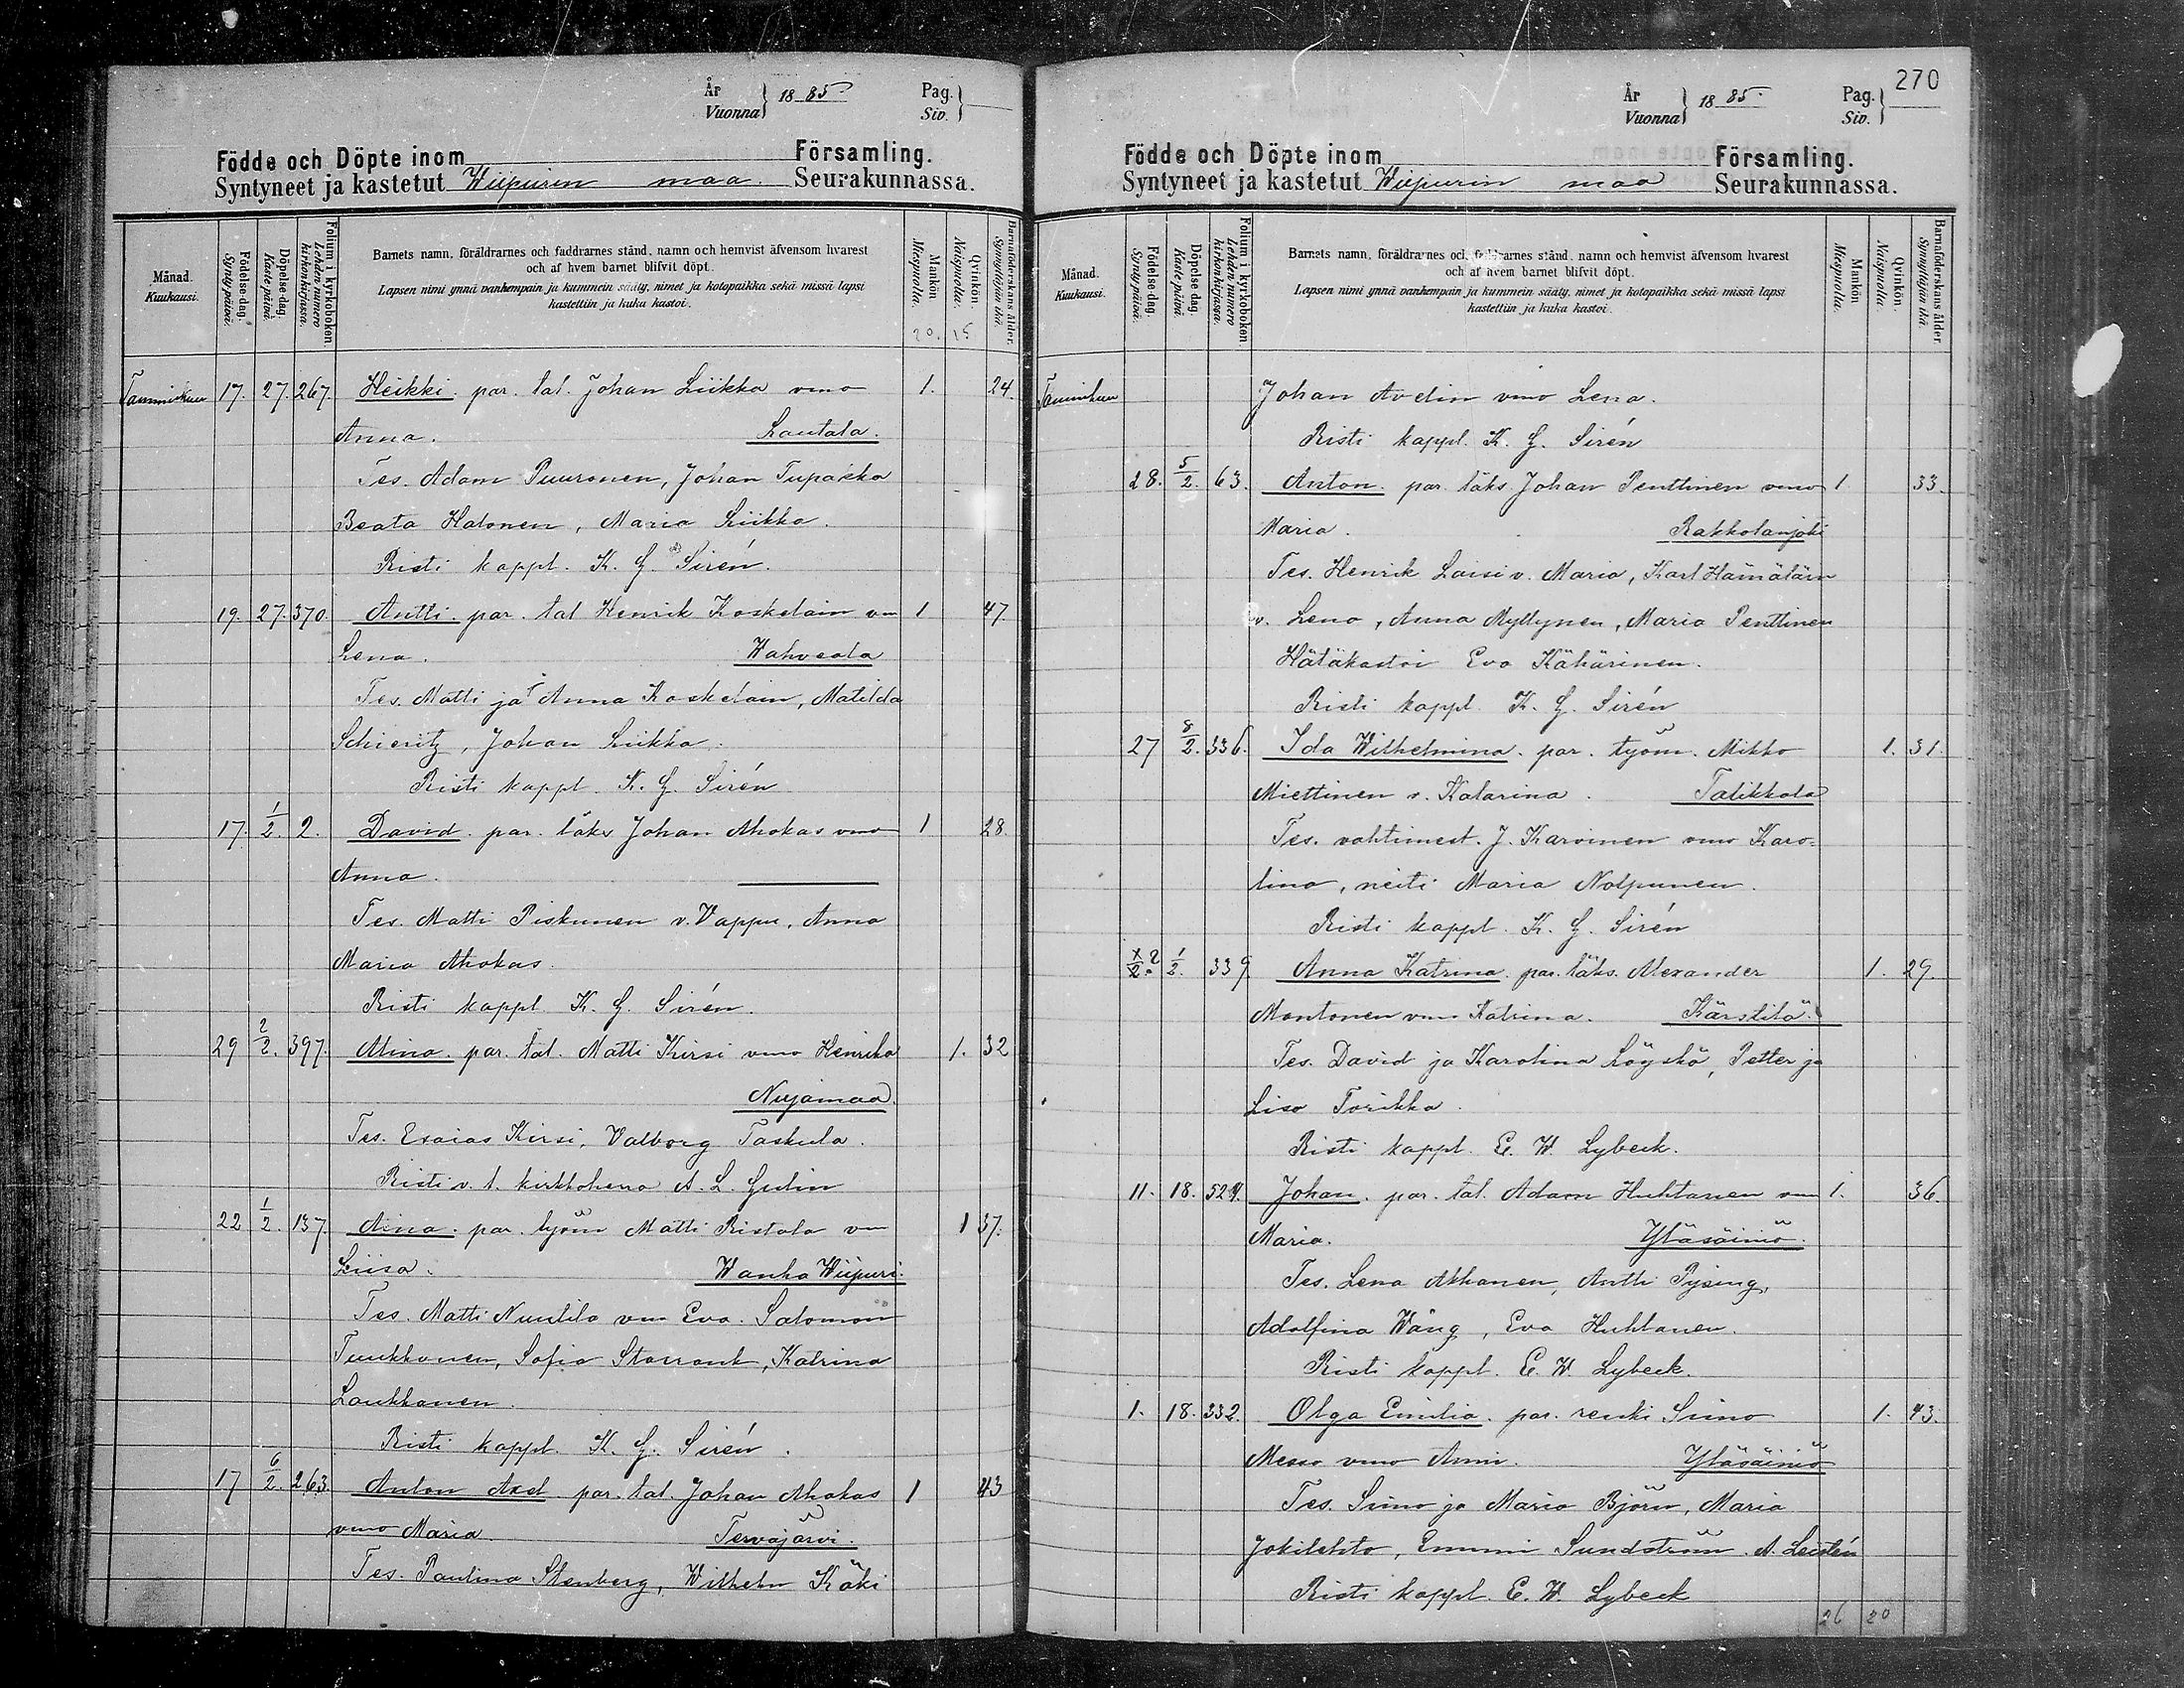 År
Vuonna } 1885.
Pag.
Siv. }
Födde och Döpte inom Församling.
Syntyneet ja kastetut Wiipurin maa. Seurakunnassa.
Månad.
Kuukausi.
Födelse-dag.
Synty päivä.
Döpelse-dag.
Kaste päivä.
Folium i kyrkoboken.
Lehden numero kirkonkirjassa.
Barnets namn, föräldrarnes och faddrarnes stånd, namn och hemvist äfvensom hvarest
och af hvem barnet blifvit döpt.
Lapsen nimi ynnä vanhempain ja kummein sääty, nimet ja kotopaikka sekä missä lapsi
kastettiin ja kuka kastoi.
Mankön.
Miespuolia.
Qvinkön.
Naispuolia.
Barnaföderskans ålder.
Synnyttäjän ikä.
20. 15
Tammikuu 17. 27. 267. Heikki. par. tal. Johan Liikka vmo 1. 24.
Anna. Lautala.
Tes. Adam Puuronen, Johan Tupakka
Beata Halonen, Maria Liikka.
Risti kappl. K. G. Sirén.
19. 27. 370. Antti. par. tal Henrik Koskelain vm 1 47.
Lena. Wahvaala
Tes. Matti ja Anna Koskelain, Matilda
Schieritz, Johan Liikka.
Risti kappl. K. G. Sirén
17. 1/2. 2. David. par. läks Johan Ahokas vmo 1 28.
Anna.
Tes. Matti Piskunen v. Vappu, Anna
Maria Ahokas.
Risti kappl K. G. Sirén.
29 2/2. 397. Alina. par. tal. Matti Kirsi vmo Henrika 1. 32
Nuijamaa.
Tes. Esaias Kirsi, Valborg Taskula.
Risti v. t. kirkkoherra A. L. Gulin
22 1/2. 137. Aina. par. työm Matti Ristola vm 1 37.
Liisa. Wanha Wiipuri.
Tes. Matti Nuutila vm Eva. Salomon
Tuukkanen, Sofia Starrank, Katrina
Laukkanen.
Risti kappl. K. G. Sirén.
17 6/2. 263. Anton Axel. par. tal. Johan Ahokas 1 43
vmo Maria. Tervajärvi.
Tes. Paulina Stenberg, Wilhelm Käki
270
År
Vuonna } 1885.
Pag.
Siv. }
Födde och Döpte inom Församling.
Syntyneet ja kastetut Wiipurin maa Seurakunnassa.
Månad.
Kuukausi.
Födelse-dag.
Synty päivä.
Döpelse dag.
Kaste päivä.
Folium i kyrkoboken.
Lehden numero kirkonkirjassa.
Barnets namn, föräldrarnes och faddrarnes stånd, namn och hemvist äfvensom hvarest
och af hvem barnet blifvit döpt.
Lapsen nimi ynnä vanhempain ja kummein sääty, nimet ja kotopaikka sekä missä lapsi
kastettiin ja kuka kastoi.
Mankön.
Miespuolia.
Qvinkön.
Naispuolia.
Barnaföderskans ålder.
Synnyttäjän ikä.
Tammikuu Johan Avelin vmo Lena.
Risti kappl. K. G. Sirén
28. 5/2. 63. Anton. par. läks. Johan Penttinen vmo 1 33.
Maria. Rakkolanjoki
Tes. Henrik Laisi v. Maria, Karl Hämäläin
v. Lena, Anna Myllynen, Maria Penttinen
Hätäkastoi Eva Kähärinen.
Risti kappl. K. G. Sirén
27 8/2. 336. Ida Wilhelmina. par. työm. Mikko 1. 31.
Miettinen v. Katarina. Talikkala
Tes. vahtimest. J. Karvinen vmo Karo-
lina, neiti Maria Nolpunen.
Risti kappl. K. G. Sirén
x/2.? 1/2. 339 Anna Katrina. par. läks. Alexander 1. 29.
Montonen vm Katrina. Kärstilä.
Tes. David ja Karolina Löyskö, Petter ja
Lisa Torikka.
Risti kappl. E. W. Lybeck.
11. 18. 524. Johan. par. tal. Adam Huhtanen vm 1. 36.
Maria. Yläsäiniö.
Tes. Lena Ahkanen, Antti Pysing,
Adolfina Wäng, Eva Huhtanen.
Risti kappl. E. W. Lybeck.
1. 18. 332. Olga Emilia. par. renki Simo 1. 43.
Messo vmo Anni. Yläsäiniö
Tes. Simo ja Maria Björn, Maria
Jokilehto, Emmi Sundström. A. Leistén
Risti kappl. E. W. Lybeck
26 20